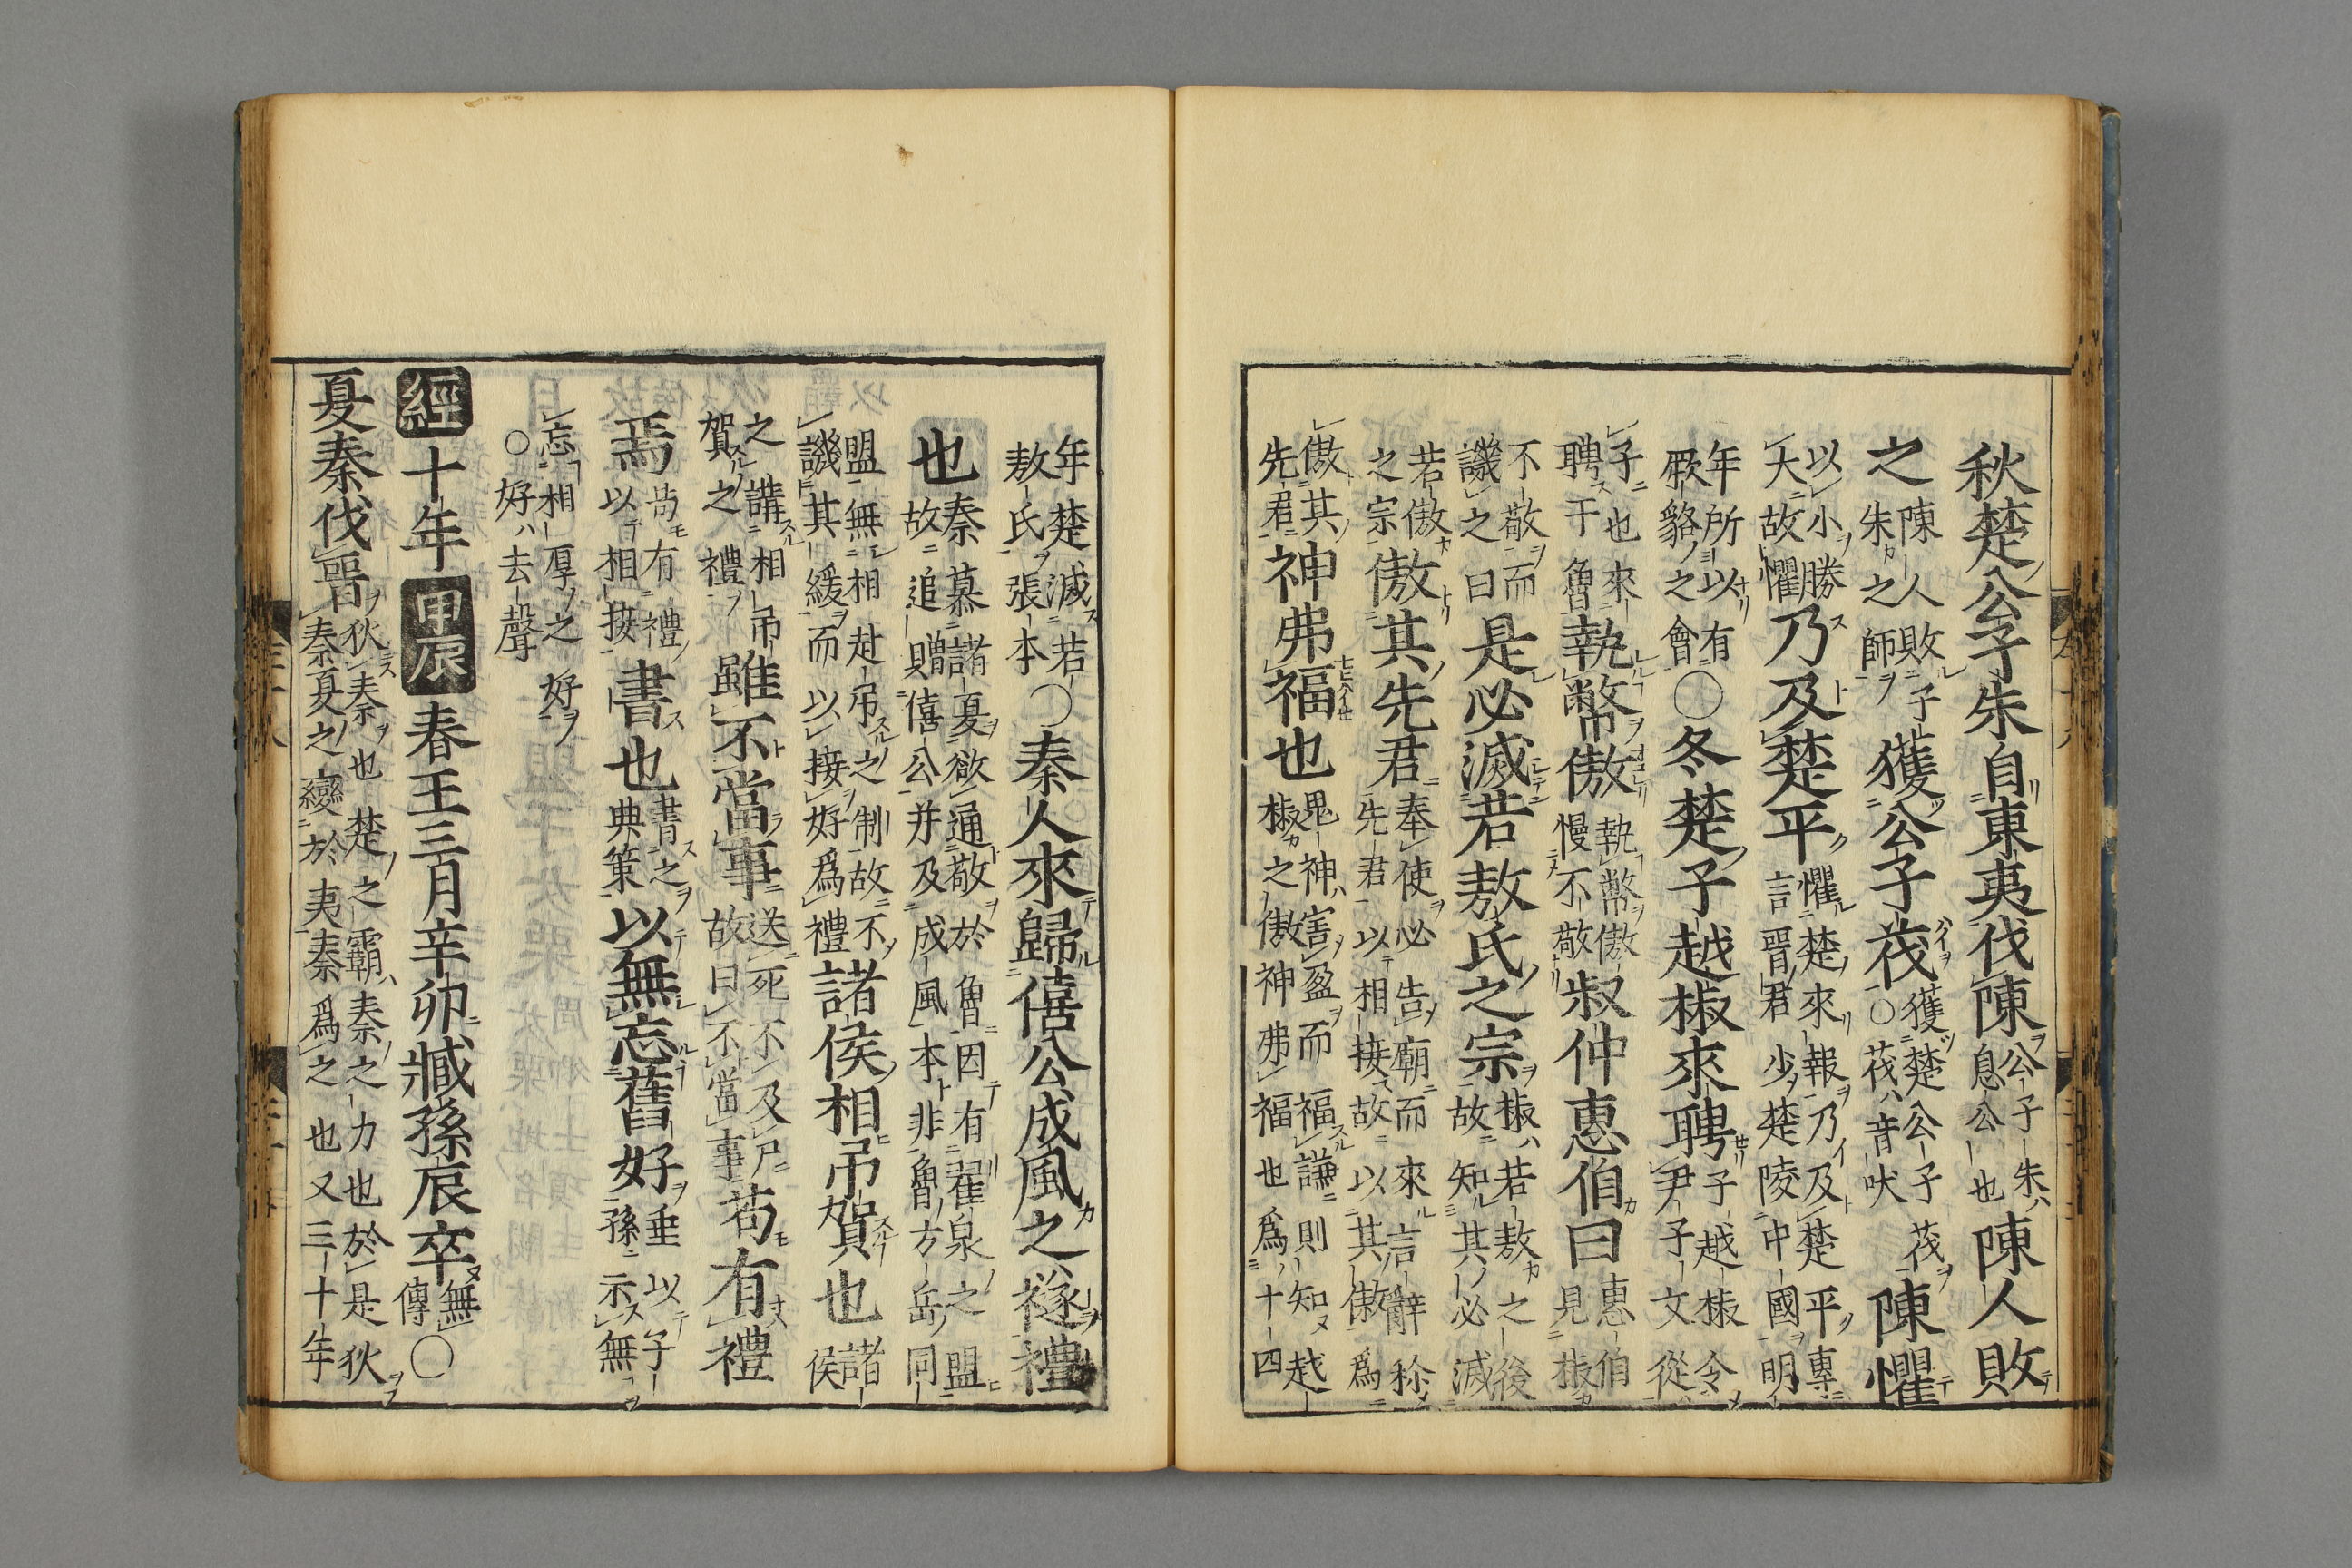 秋楚公子朱自東夷伐陳公子朱息公也陳人敗
之陳人敗子朱之師獲公子茷獲楚公子茷○茷音吠陳懼
以小勝大故懼乃及楚平懼楚來報乃及楚平專言晉君少楚陵中國明
年所以有厥貉之會○冬楚子越椒來聘子越椒令尹子文從
子也來聘于魯執幣傲執幣傲慢不敬叔仲惠伯曰惠伯見椒
不敬而譏之曰是必滅若敖氏之宗椒若敖之後故知其必滅
若傲之宗傲其先君奉使必告廟而來言辭稱先君以相接故以其傲爲
傲其先君神弗福也鬼神害盈而福謙則知越椒之傲神弗福也爲十四
年楚滅若敖氏張本○秦人來歸僖公成風之襚禮
也秦慕諸夏欲通敬於魯因有翟泉之盟故追贈僖公并及成風本非魯方岳同
盟無相赴弔之制故不譏其緩而以接好爲禮諸侯相弔賀也諸侯
之講相弔賀之禮雖不當事送死不及尸故曰不當事苟有禮
焉苟有禮以相接書也書之典策以無忘舊好垂以子孫示無
忘相厚之好○好去聲
經十年甲辰春王三月辛卯臧孫辰卒無傳○
夏秦伐晉狄秦也楚之霸秦之力也於是狄秦夏之變於夷秦爲之也又三十年